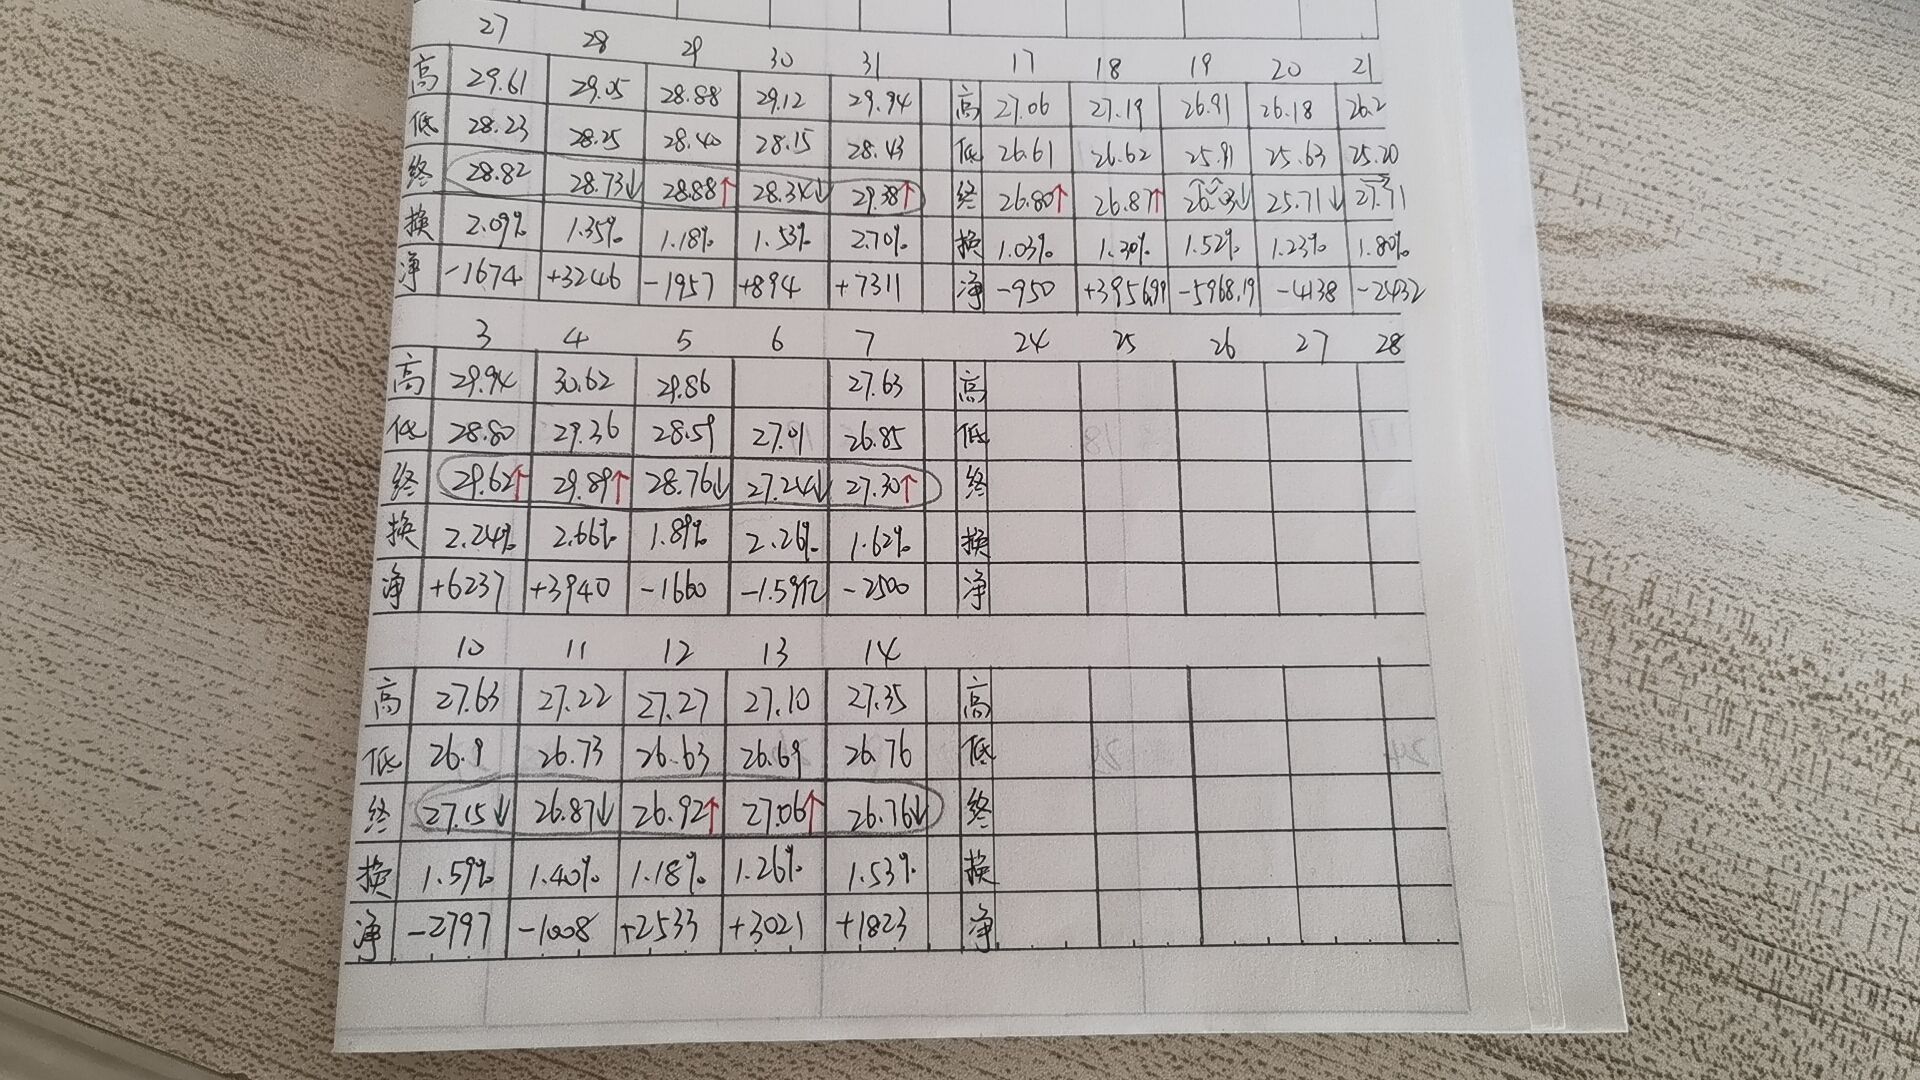 27 28 29 30 31
高 29.61 29.05 28.88 29.12 29.94
低 28.23 28.25 28.40 28.15 28.43
终 28.82 28.73↓ 28.88↑ 28.34↓ 29.38↑
换 2.09% 1.35% 1.18% 1.53% 2.70%
净 -1674 +3246 -1957 +894 +7311
17 18 19 20 21
高 27.06 27.19 26.91 26.18 26.2
低 26.61 26.62 25.91 25.63 25.20
终 26.80↑ 26.87↑ 25.71↓
换 1.03% 1.20% 1.52% 1.23% 1.80%
净 -950 +3956.99 -5968.19 -4138 -2432
3 4 5 6 7
高 29.94 30.62 29.86 27.63
低 28.80 29.36 28.59 27.01 26.85
终 29.62↑ 29.89↑ 28.76↓ 27.24↓ 27.30↑
换 2.24% 2.66% 1.89% 2.26% 1.62%
净 +6237 +3940 -1660 -1.59亿 -2500
24 25 26 27 28
高
低
终
换
净
10 11 12 13 14
高 27.63 27.22 27.27 27.10 27.35
低 26.9 26.73 26.63 26.69 26.76
终 27.15↓ 26.87↓ 26.92↑ 27.06↑ 26.76↓
换 1.59% 1.40% 1.18% 1.26% 1.53%
净 -2797 -1008 +2533 +3021 +1823
高
低
终
换
净